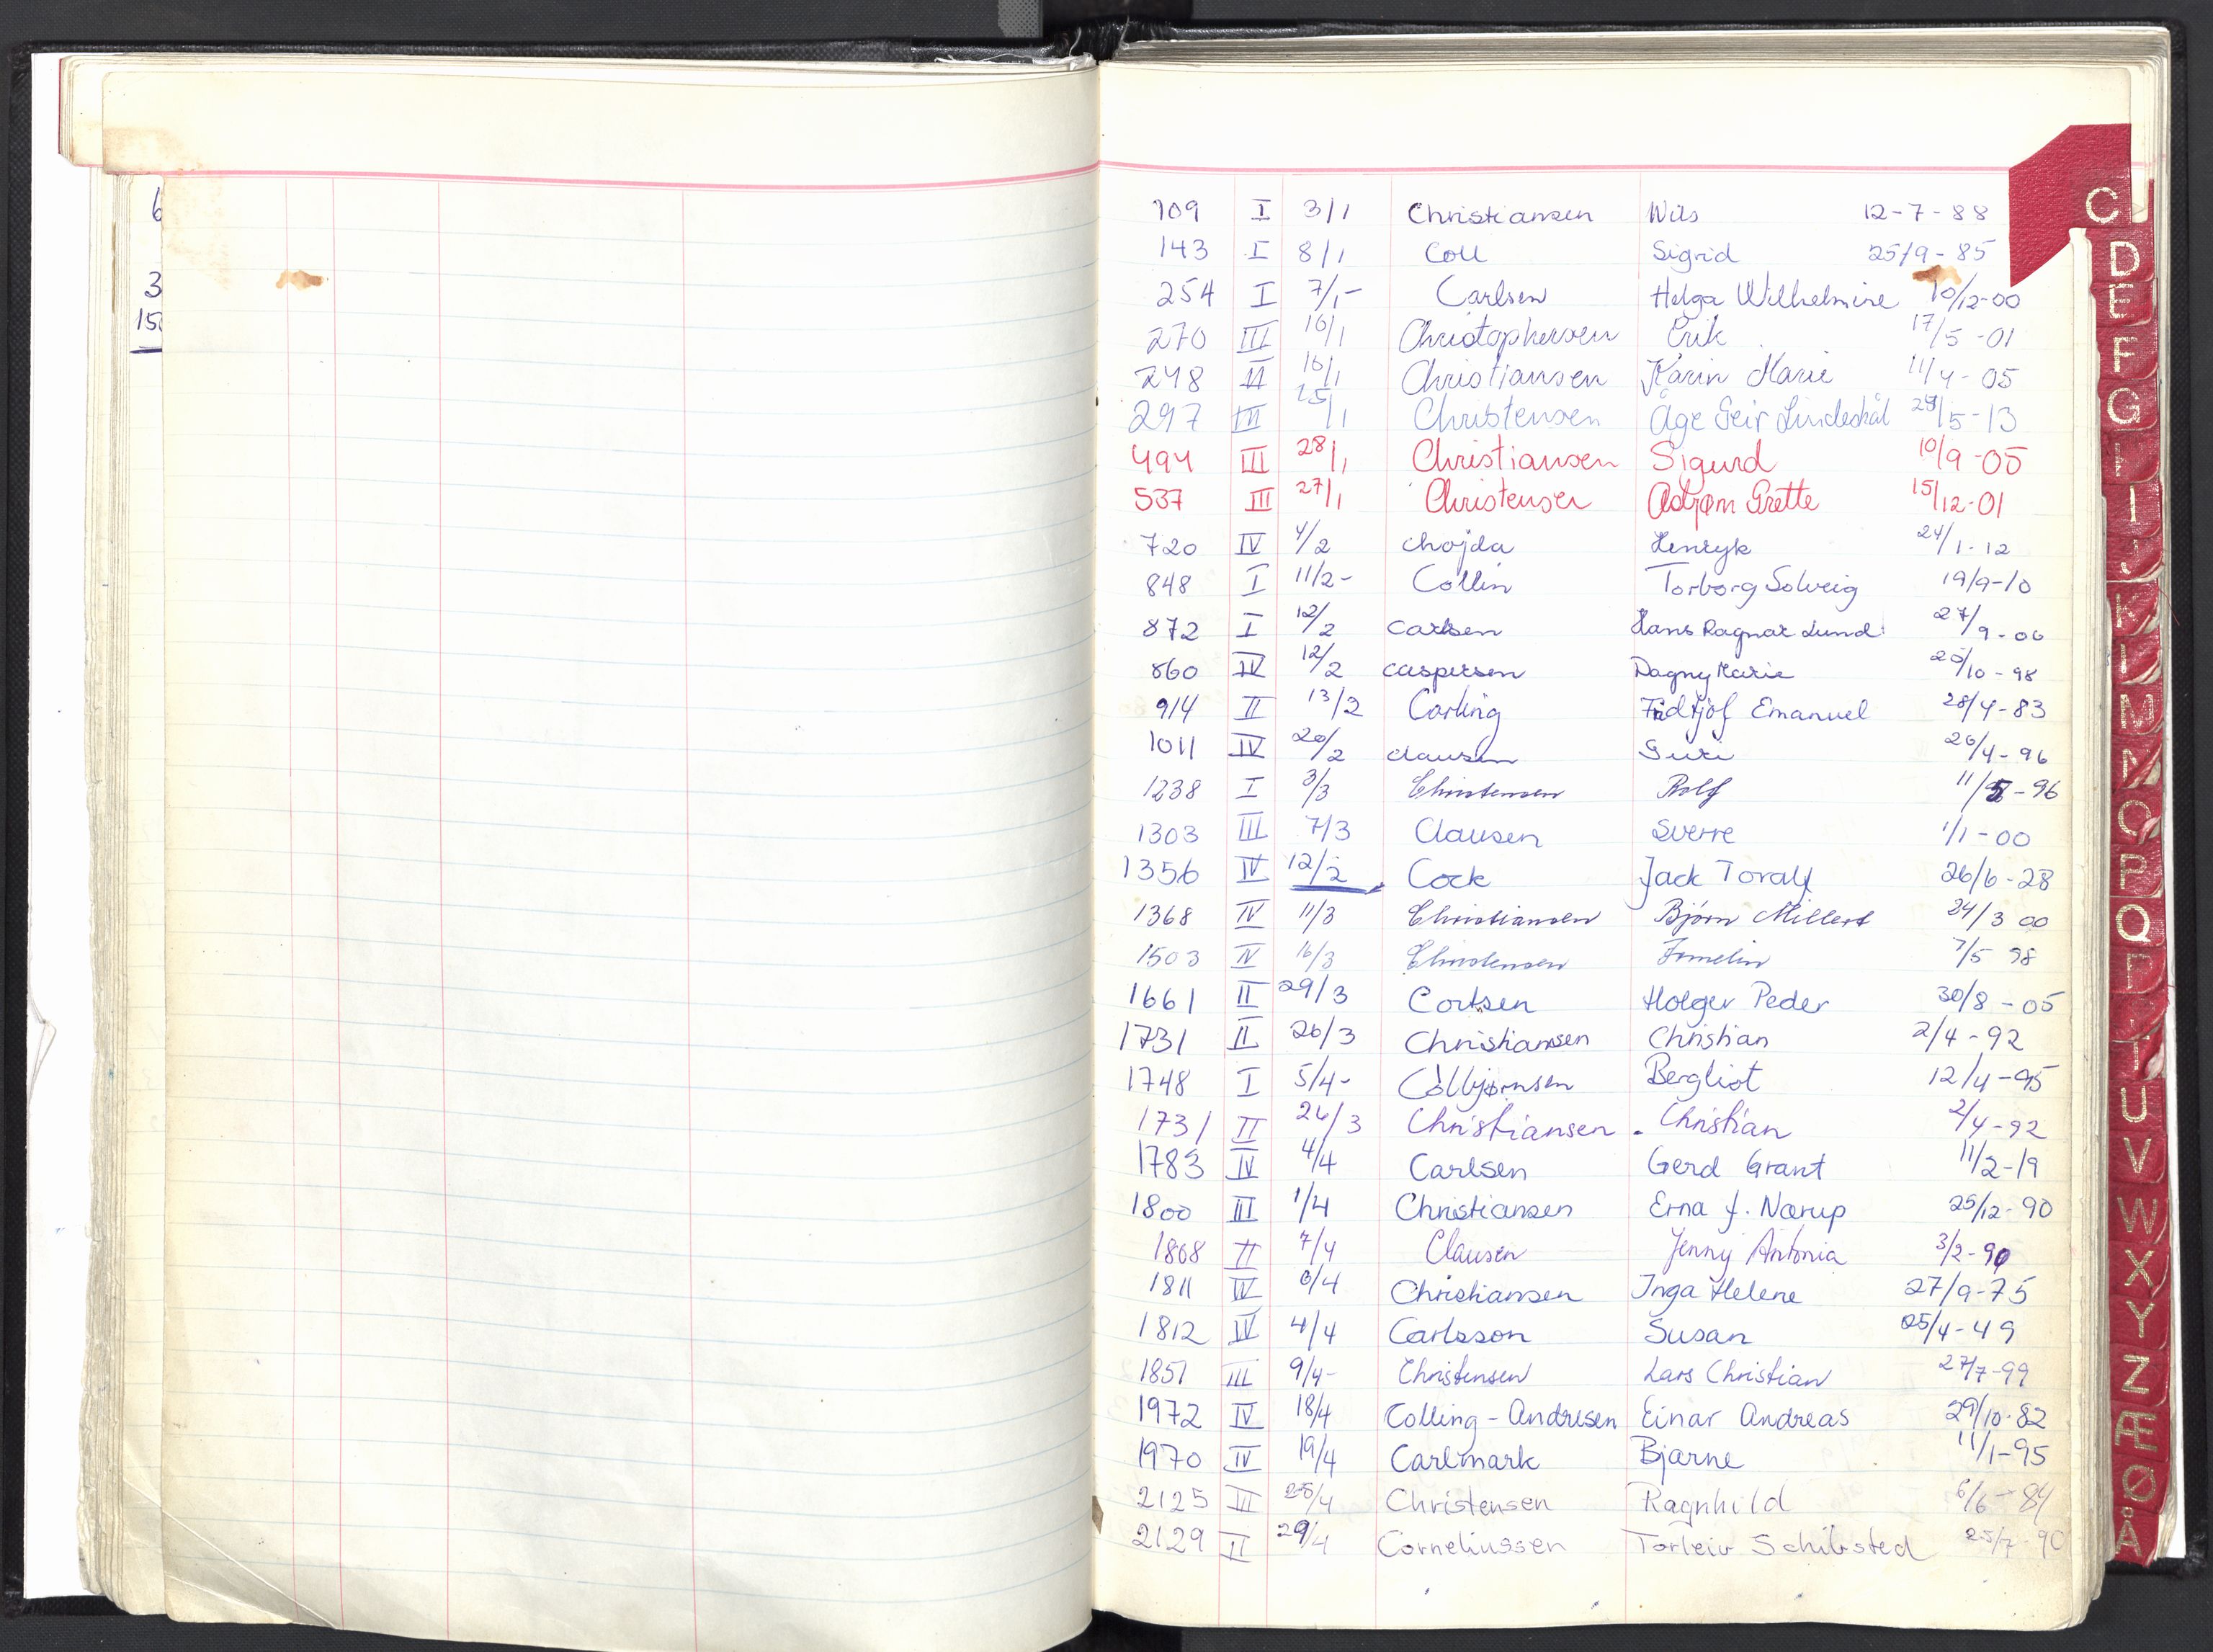 6
3
15
109 I 3/1 Christiansen Nils 12-7-88
143 I 8/1 Coll Sigrid 25/9-85
254 I 7/1- Carlsen Helga Wilhelmine 10/12-00
270 III 16/1 Christophersen Erik 17/5-01
248 II 16/1 Christiansen Karin Marie 11/4-05
297 III 25/1 Christensen Åge Geir Lindeskål 29/5-13
494 III 28/1 Christiansen Sigurd 10/9-05
537 III 27/1 Christensen Asbjørn Grette 15/12-01
720 IV 4/2 Chojda Henryk 24/1-12
848 I 11/2- Collin Torborg Solveig 19/9-10
872 I 12/2 Carlsen Hans Ragnar Lund 27/9-06
860 IV 12/2 Caspersen Dagny Marie 20/10-98
914 II 13/2 Carling Fridtjof Emanuel 28/4-83
1011 IV 20/2 Clausen Guri 26/4-96
1238 I 3/3 Christensen Rolf 11/5-96
1303 III 7/3 Clausen Sverre 1/1-00
1356 IV 12/2 Cock Jack Toralf 26/6-28
1368 IV 11/3 Christiansen Bjørn Millert 24/3 00
1503 IV 16/3 Christensen 7/5 98
1661 II 29/3 Cortsen Holger Peder 30/8-05
1731 II 26/3 Christiansen Christian 2/4-92
1748 I 5/4- Colbjørnsen Bergliot 12/4-95
1731 II 26/3 Christiansen Christian 2/4-92
1783 IV 4/4 Carlsen Gerd Grant 11/2-19
1800 III 1/4 Christiansen Erna f. Nørup 25/12-90
1808 II 7/4 Clausen Jenny Antonia 3/2-90
1811 IV 6/4 Christiansen Inga Helene 27/9-75
1812 IV 4/4 Carlsson Susan 25/4-49
1851 III 9/4- Christensen Lars Christian 27/7-99
1972 IV 18/4 Colling-Andresen Einar Andreas 29/10-82
1970 IV 19/4 Carlmark Bjarne 11/1-95
2125 III 25/4 Christensen Ragnhild 6/6-84
2129 II 29/4 Corneliussen Torleiv Schibsted 25/7-90
C
D
E
F
G
H
I
J
K
L
M
N
O
P
Q
R
T
U
V
W
X
Y
Z
Æ
Ø
Å